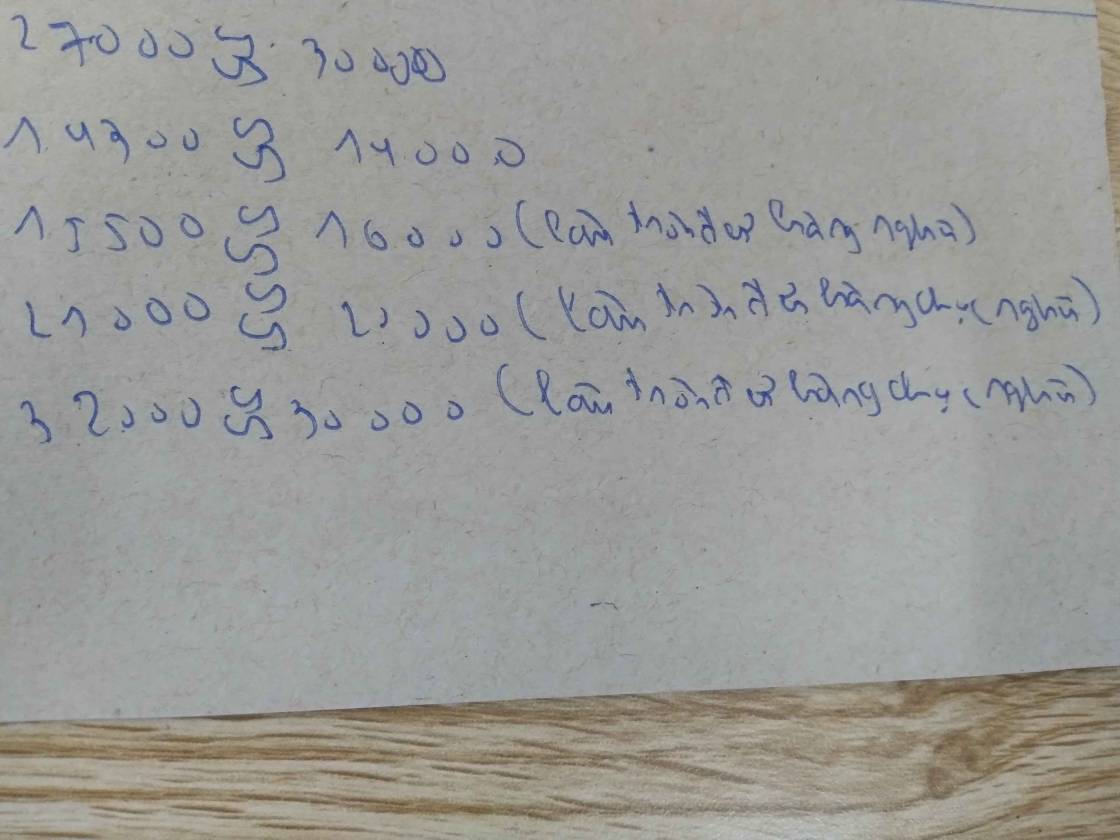 27000 ≈ 30000
14300 ≈ 14000
15500 ≈ 16000 (làm tròn đến hàng nghìn)
21000 ≈ 20000 (làm tròn đến hàng chục nghìn)
32000 ≈ 30000 (làm tròn đến hàng chục nghìn)